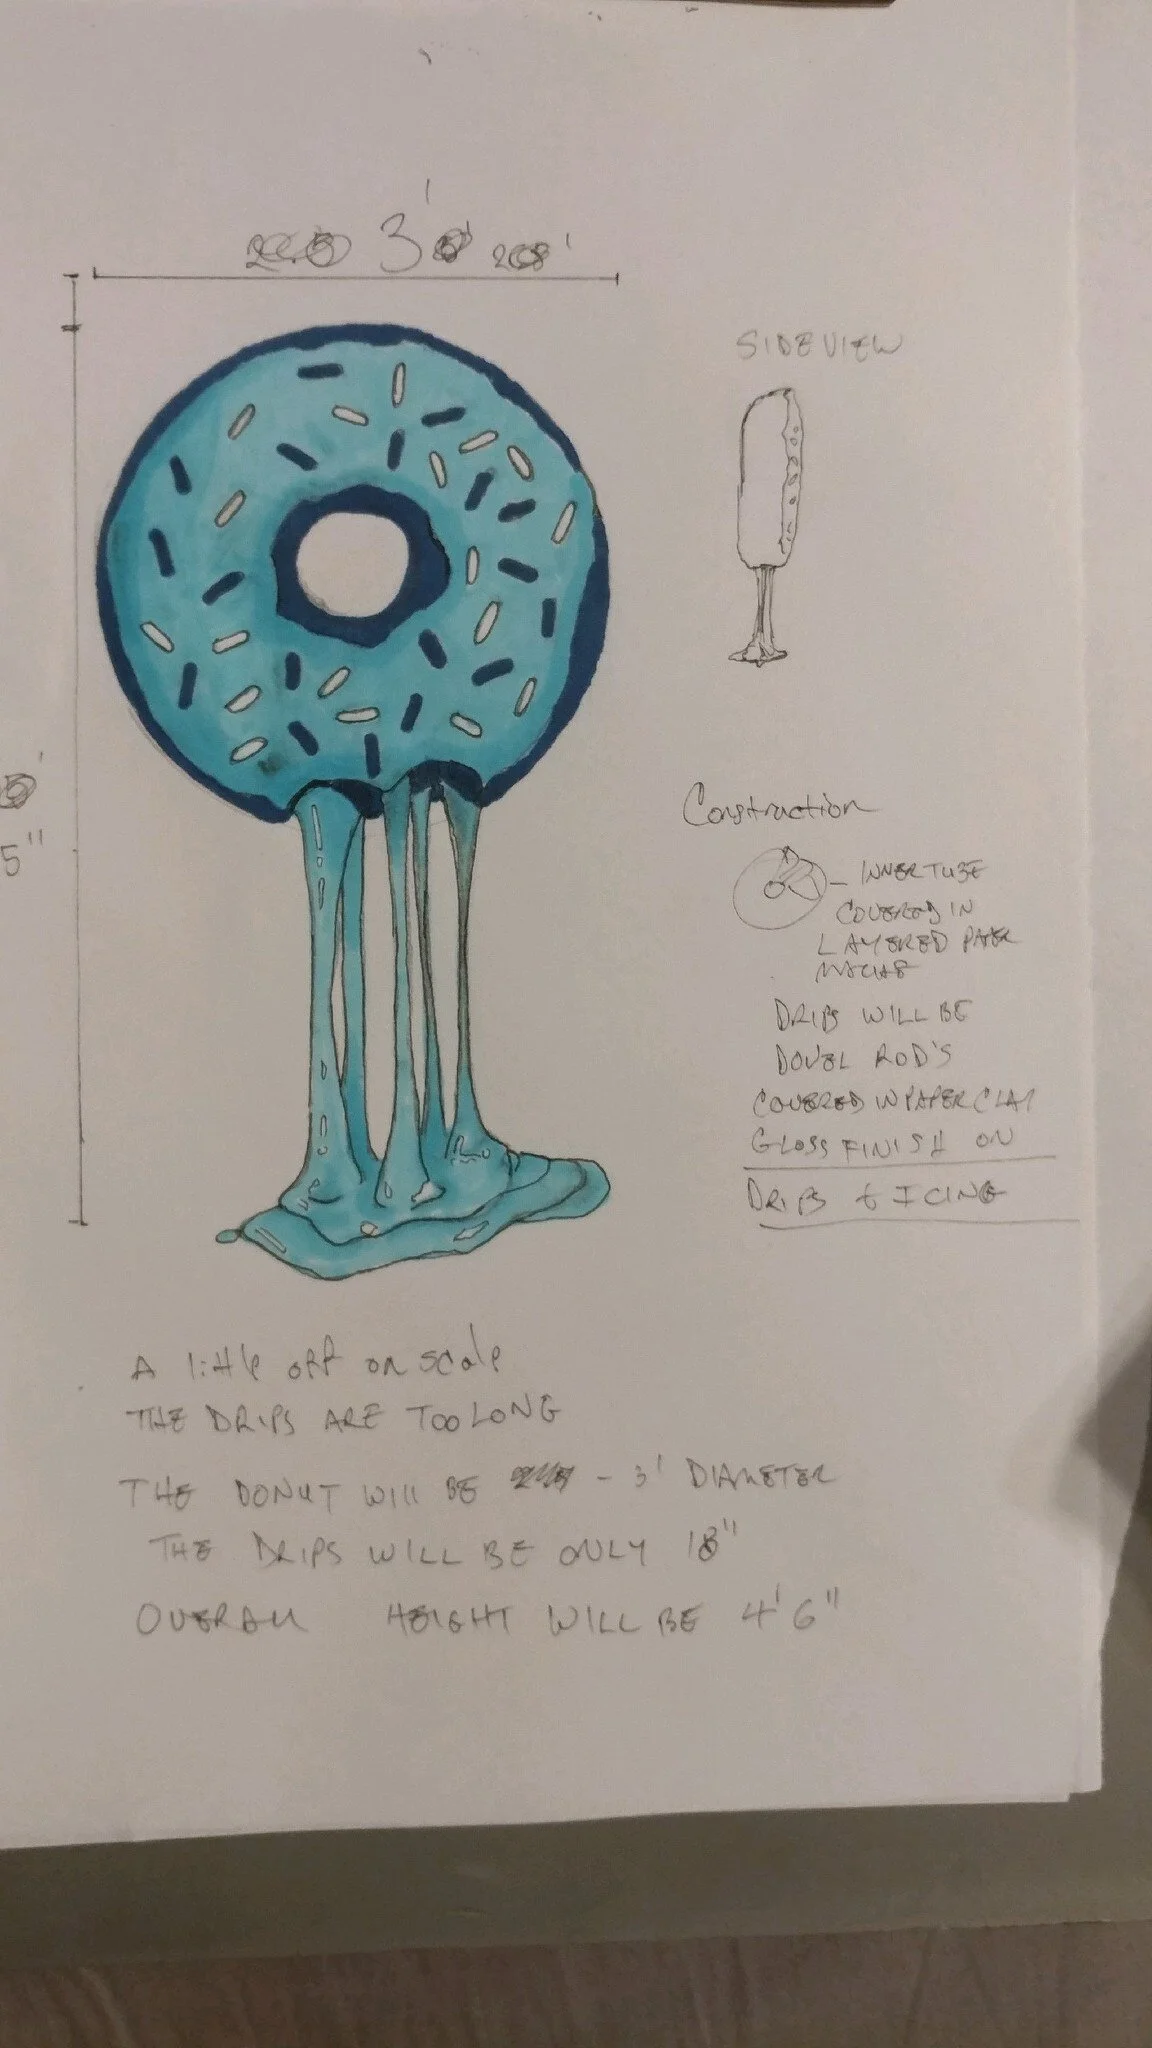 3'
SIDE VIEW
5"
Construction
INNER TUBE
COVERED IN
LAYERED PAPER
MACHE
DRIPS WILL BE
DOWEL ROD'S
COVERED IN PAPER CLAY
GLOSS FINISH ON
DRIPS & ICING
A little off on scale
THE DRIPS ARE TOO LONG
THE DONUT WILL BE - 3' DIAMETER
THE DRIPS WILL BE ONLY 18"
OVERALL HEIGHT WILL BE 4'6"